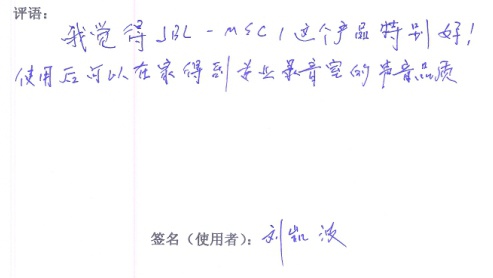 评语：
我觉得JBL-MSC1这个产品特别好！
使用后可以在家得到专业录音室的声音品质
签名（使用者）：刘凯波